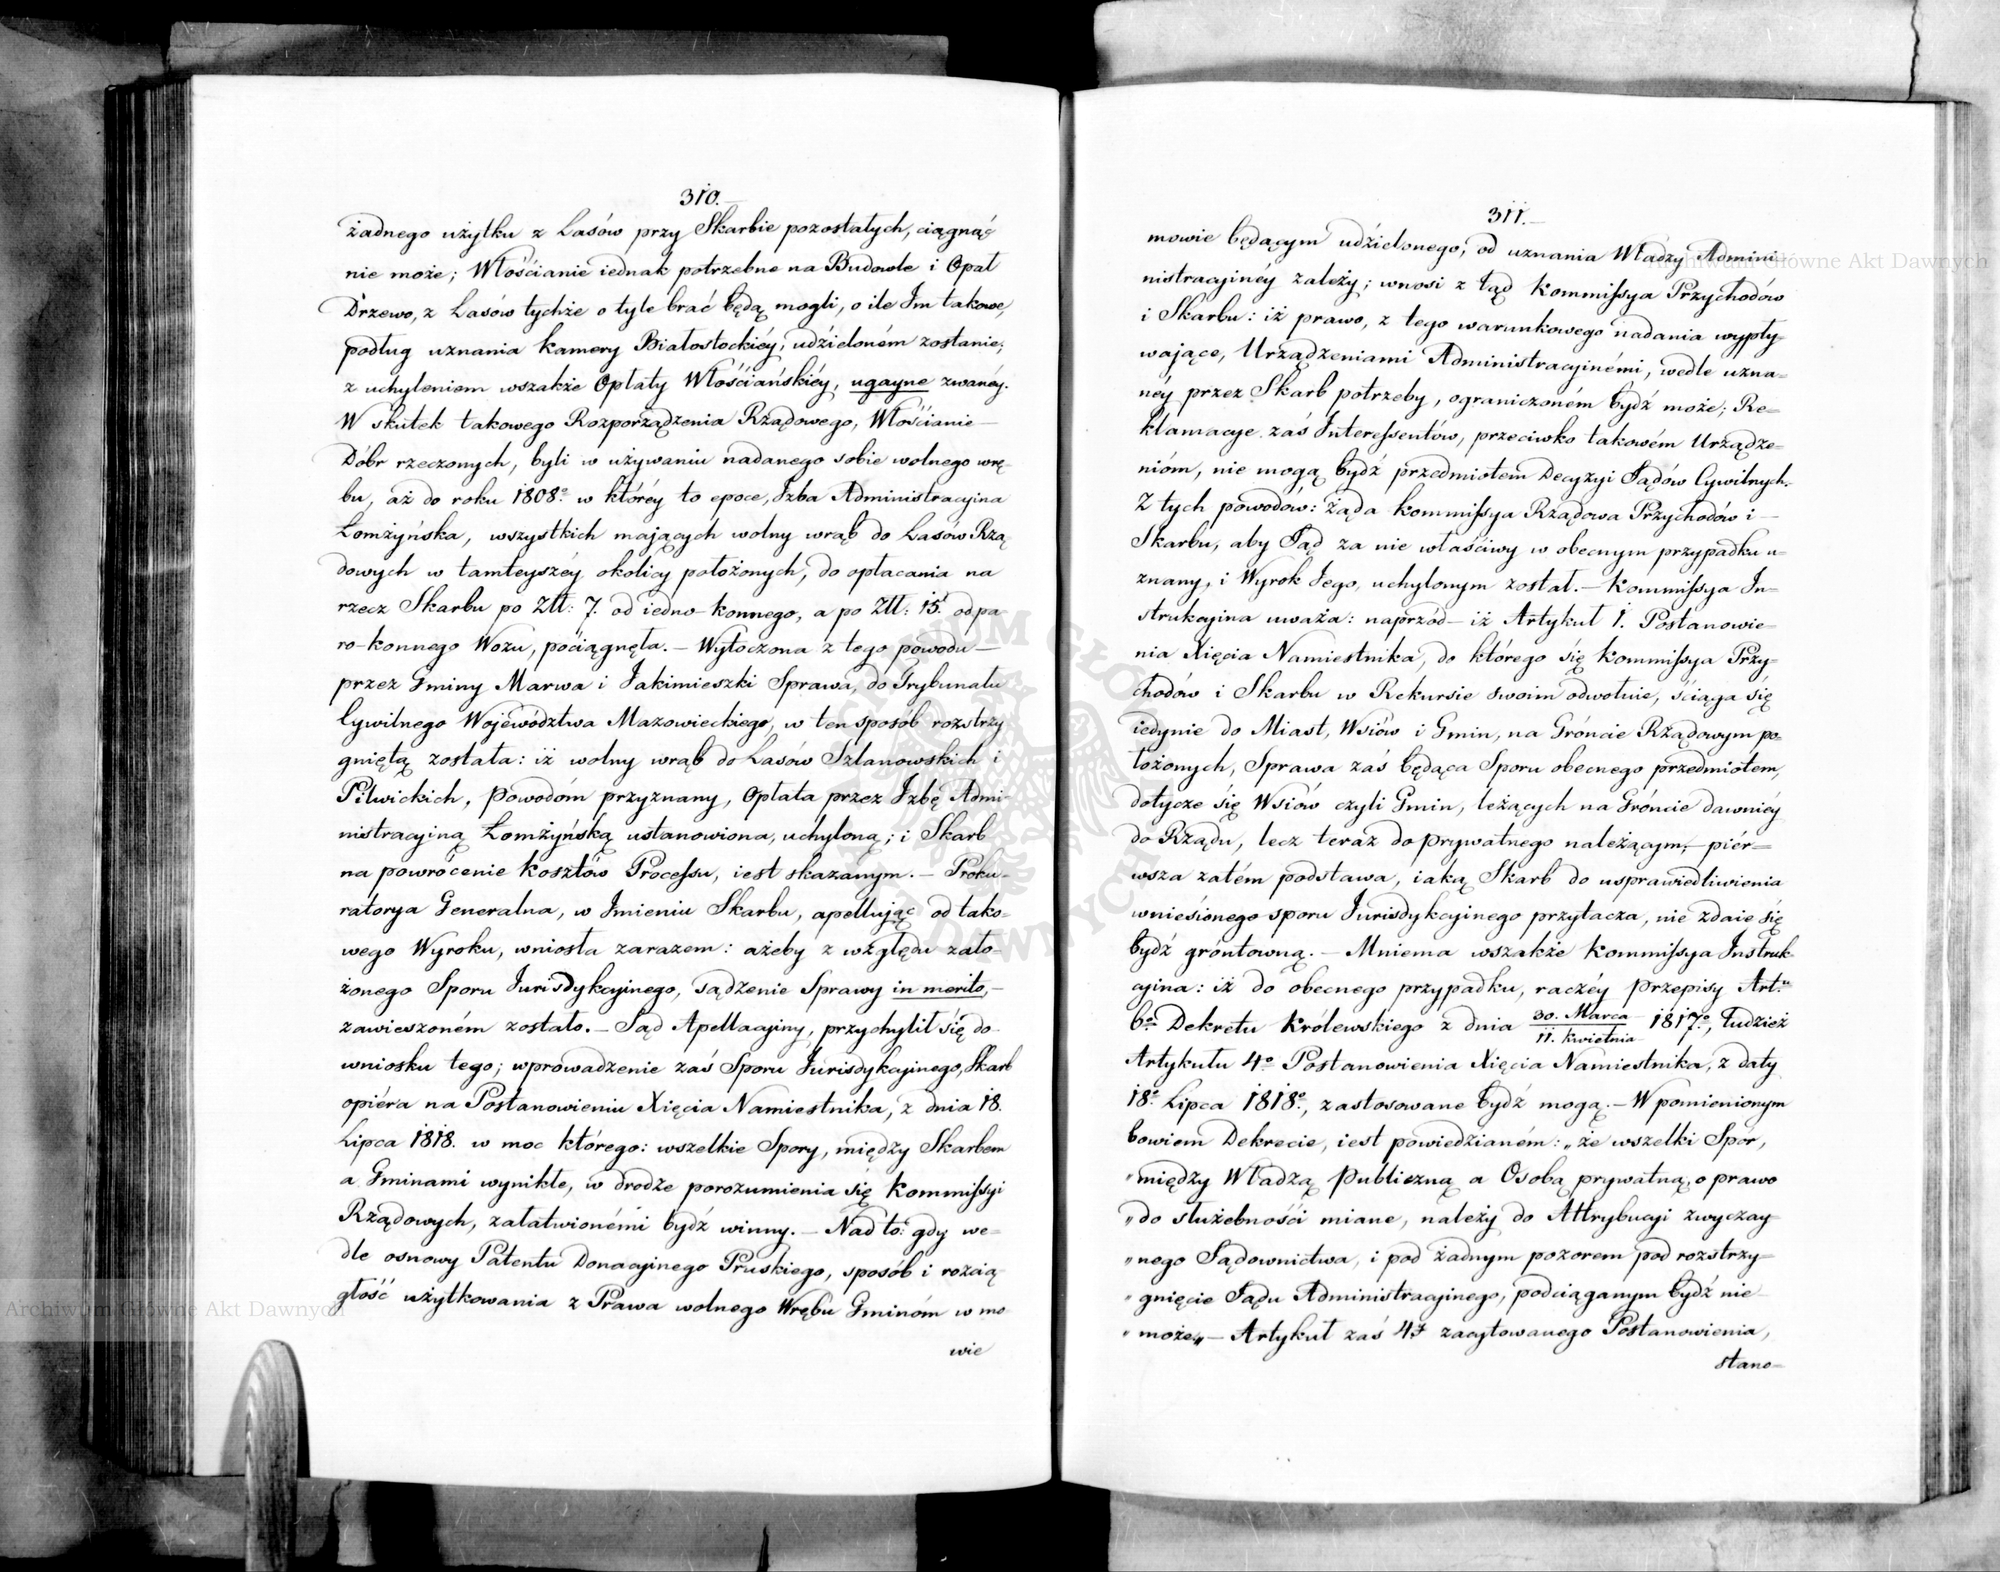 310.
żadnego użytku z Lasów przy Skarbie pozostałych, ciągnąć
nie może; Włościanie iednak potrzebne na Budowle i Opał
Drzewo, z Lasów tychże o tyle brać będą mogli, o ile Im takowe,
podług uznania Kamery Białostockiéy, udzieloném zostanie;
z uchyleniem wszakże Opłaty Włościańskiéy, ugayne zwanéy.
W skutek takowego Rozporządzenia Rządowego, Włościanie
Dóbr rzeczonych, byli w używaniu nadanego sobie wolnego wrę-
bu, aż do roku 1808o w któréy to epoce, Izba Administracyina
Łomżyńska, wszystkich maiących wolny wrąb do Lasów Rzą
dowych w tamteyszéy okolicy położonych, do opłacania na
rzecz Skarbu po Złł: 7. od iedno-konnego, a po Złł: 15. od pa
ro-konnego Wozu, pociągnęła. — Wytoczona z tego powodu —
przez Gminy Marwa i Jakimieszki Sprawa, do Trybunału
Cywilnego Województwa Mazowieckiego, w ten sposób rozstrzy
gniętą została: iż wolny wrąb do Lasów Szlanowskich i
Pilwickich, Powodóm przyznany, Opłata przez Izbę Admi-
nistracyiną Łomżyńską ustanowiona, uchyloną; i Skarb
na powrócenie Kosztów Processu, iest skazanym. — Proku-
ratorya Generalna, w Imieniu Skarbu, apelluiąc od tako-
wego Wyroku, wniosła zarazem: ażeby z względu zało-
żonego Sporu Jurisdykcyinego, sądzenie Sprawy in merito, —
zawieszoném zostało. — Sąd Apellacyiny, przychylił się do
wniosku tego; wprowadzenie zaś Sporu Jurisdykcyinego, Skarb
opiéra na Postanowieniu Xięcia Namiestnika, z dnia 18.
Lipca 1818. w moc którego: wszelkie Spory, między Skarbem
a Gminami wynikłe, w drodze porozumienia się Kommissyi
Rządowych, załatwionémi bydź winny. — Nad to: gdy we-
dle osnowy Patentu Donacyinego Pruskiego, sposób i rozcią
głość użytkowania z Prawa wolnego Wrębu Gminóm w mo
wie
311.
mowie będącym udzielonego, od uznania Władzy Admini-
nistracyinéy zależy; wnosi z tąd Kommissya Przychodów
i Skarbu: iż prawo, z tego warunkowego nadania wypły-
waiące, Urządzeniami Administracyinémi, wedle uzna-
néy przez Skarb potrzeby, ograniczoném bydź może; Re-
klamacye zaś Interessentów, przeciwko takowém Urządze-
nióm, nie mogą bydź przedmiotem Decyzyi Sądów Cywilnych.
Z tych powodów: żąda Kommissya Rządowa Przychodów i —
Skarbu, aby Sąd za nie właściwy w obecnym przypadku u-
znany, i Wyrok Iego, uchylonym został. — Kommissya In-
strukcyina uważa: naprzód — iż Artykuł 1. Postanowie-
nia Xięcia Namiestnika, do którego się Kommissya Przy-
chodów i Skarbu w Rekursie swoim odwołuie, ściąga się
iedynie do Miast, Wsiów i Gmin, na Gróncie Rządowym po-
łożonych, Sprawa zaś będąca Sporu obecnego przedmiotem,
dotycze się Wsiów czyli Gmin, leżących na Gróncie dawniéy
do Rządu, lecz teraz do prywatnego należącym, — piér-
wsza zatém podstawa, iaką Skarb do usprawiedliwienia
wniesionego sporu Jurisdykcyinego przytacza, nie zdaie się
bydź gróntowną. — Mniema wszakże Kommissya Instruk-
cyina: iż do obecnego przypadku, raczéy Przepisy Art:u
6o Dekretu Królewskiego z dnia 30. Marca / 11. Kwietnia 1817o, tudzież
Artykułu 4o Postanowienia Xięcia Namiestnika, z daty
18o Lipca 1818o, zastosowane bydź mogą. — W pomienionym
bowiem Dekrecie, iest powiedzianém: „że wszelki Spór,
„między Władzą Publiczną a Osobą prywatną, o prawo
„do służebności miane, należy do Attrybucyi zwyczay-
„nego Sądownictwa, i pod żadnym pozorem pod rozstrzy-
„gnięcie Sądu Administracyinego, podciąganym bydź nie
„może„ — Artykuł zaś 4ł zacytowanego Postanowienia,
stano-
Archiwum Główne Akt Dawnych
Archiwum Główne Akt Dawnych